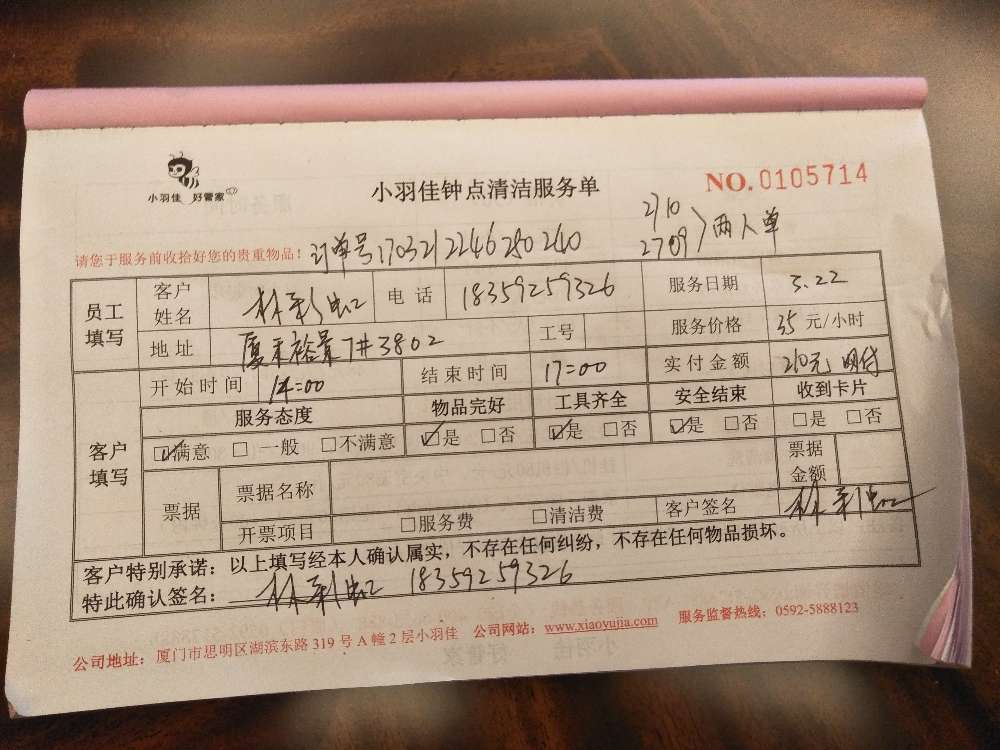 小羽佳 好管家
小羽佳钟点清洁服务单
NO.0105714
请您于服务前收拾好您的贵重物品！ 订单号170321 2246280240
2710
2709 〉两人单
员工填写 客户姓名 林彩虹 电话 18359259326 服务日期 3.22
地址 厦禾裕景7#3802 工号 服务价格 35 元/小时
客户填写 开始时间 14:00 结束时间 17:00 实付金额 210元
服务态度 物品完好 工具齐全 安全结束 收到卡片
☑满意 □一般 □不满意 ☑是 □否 ☑是 □否 ☑是 □否 □是 □否
票据 票据名称 票据金额
开票项目 □服务费 □清洁费 客户签名 林彩虹
客户特别承诺：以上填写经本人确认属实，不存在任何纠纷，不存在任何物品损坏。
特此确认签名： 林彩虹 18359259326
公司地址：厦门市思明区湖滨东路 319 号 A 幢 2 层小羽佳 公司网站：www.xiaoyujia.com 服务监督热线：0592-5888123